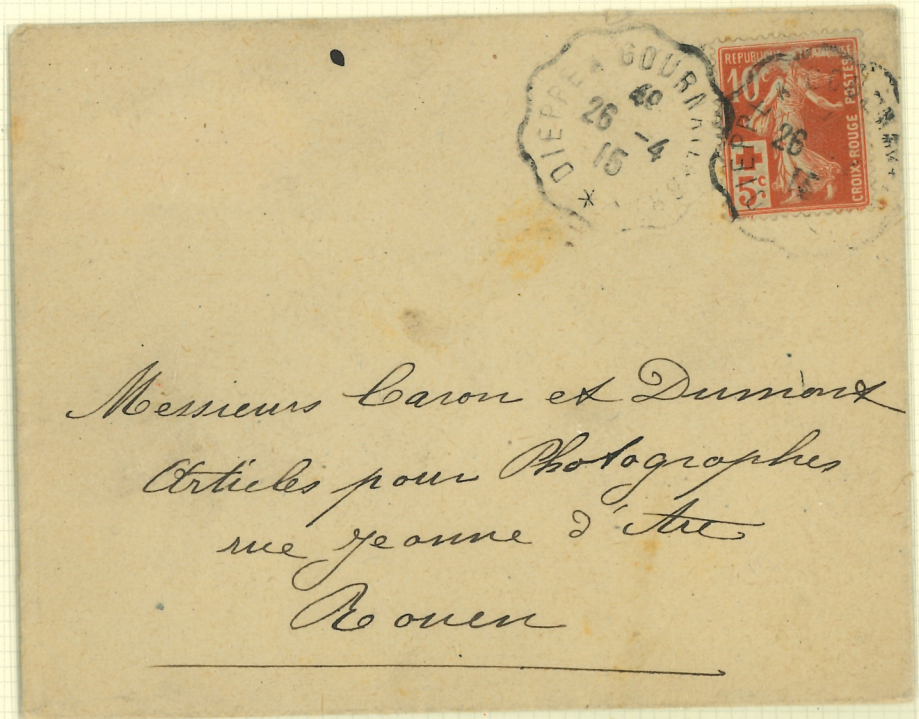 DIEPPE A GOURNAY
26 -4
15
REPUBLIQUE FRANCAISE
10c
POSTES
CROIX-ROUGE
5c
DIEPPE A
26
15
Messieurs Caron et Dumont
Articles pour Photographes
rue Jeanne d'Arc
Rouen